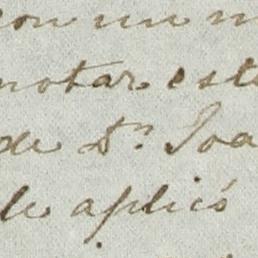 con un m
notar este
de Dn. Joa
le aplicó